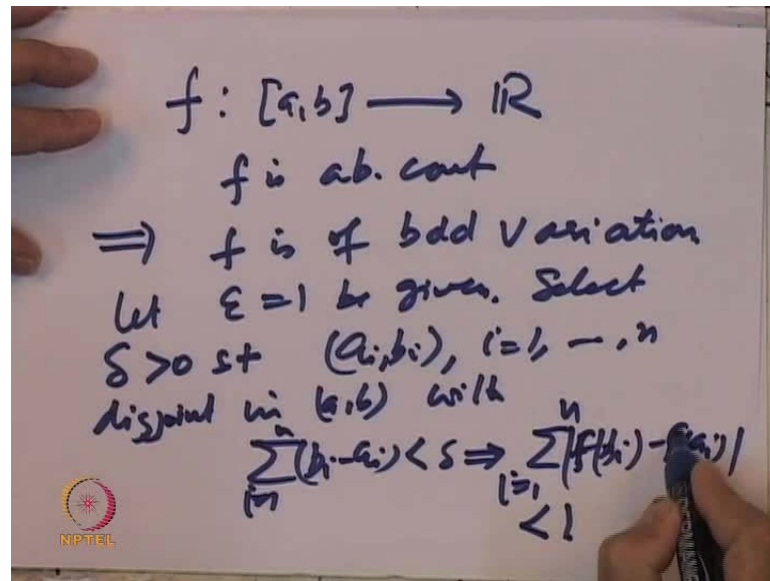 f : [a,b] ⟶ ℝ
f is ab. cont
⟹ f is of bdd variation
Let ε = 1 be given. Select
δ > 0 st (aᵢ,bᵢ), i=1, –, n
disjoint in (a,b) with
∑ᵢ₌₁ⁿ (bᵢ-aᵢ) < δ ⟹ ∑ᵢ₌₁ⁿ |f(bᵢ) – f(aᵢ)|
< 1
NPTEL